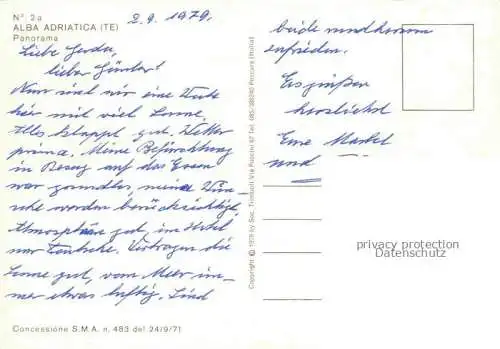 N° 2a
ALBA ADRIATICA (TE)
Panorama
2.9. 1979.
Liebe Gerda,
lieber Günter!
Nun sind wir eine Woche
hier mit viel Sonne,
Alles klappt gut. Wetter
prima. Meine Befürchtung
in Bezug auf das Essen
war grundlos, meine Wün-
sche werden berücksichtigt,
Atmosphäre gut, im Hotel
nur Deutsche. Vertragen die
Sonne gut, vom Meer im-
mer etwas luftig. Sind
Concessione S.M.A. n. 483 del 24/9/71
Copyright © 1979 by Soc. Trimboli Via Puccini 67 Tel. 485, 38240 Pescara (Italia)
beide rundherum
zufrieden.
Es grüßen
herzlichst
Eure
und
privacy protection
Datenschutz